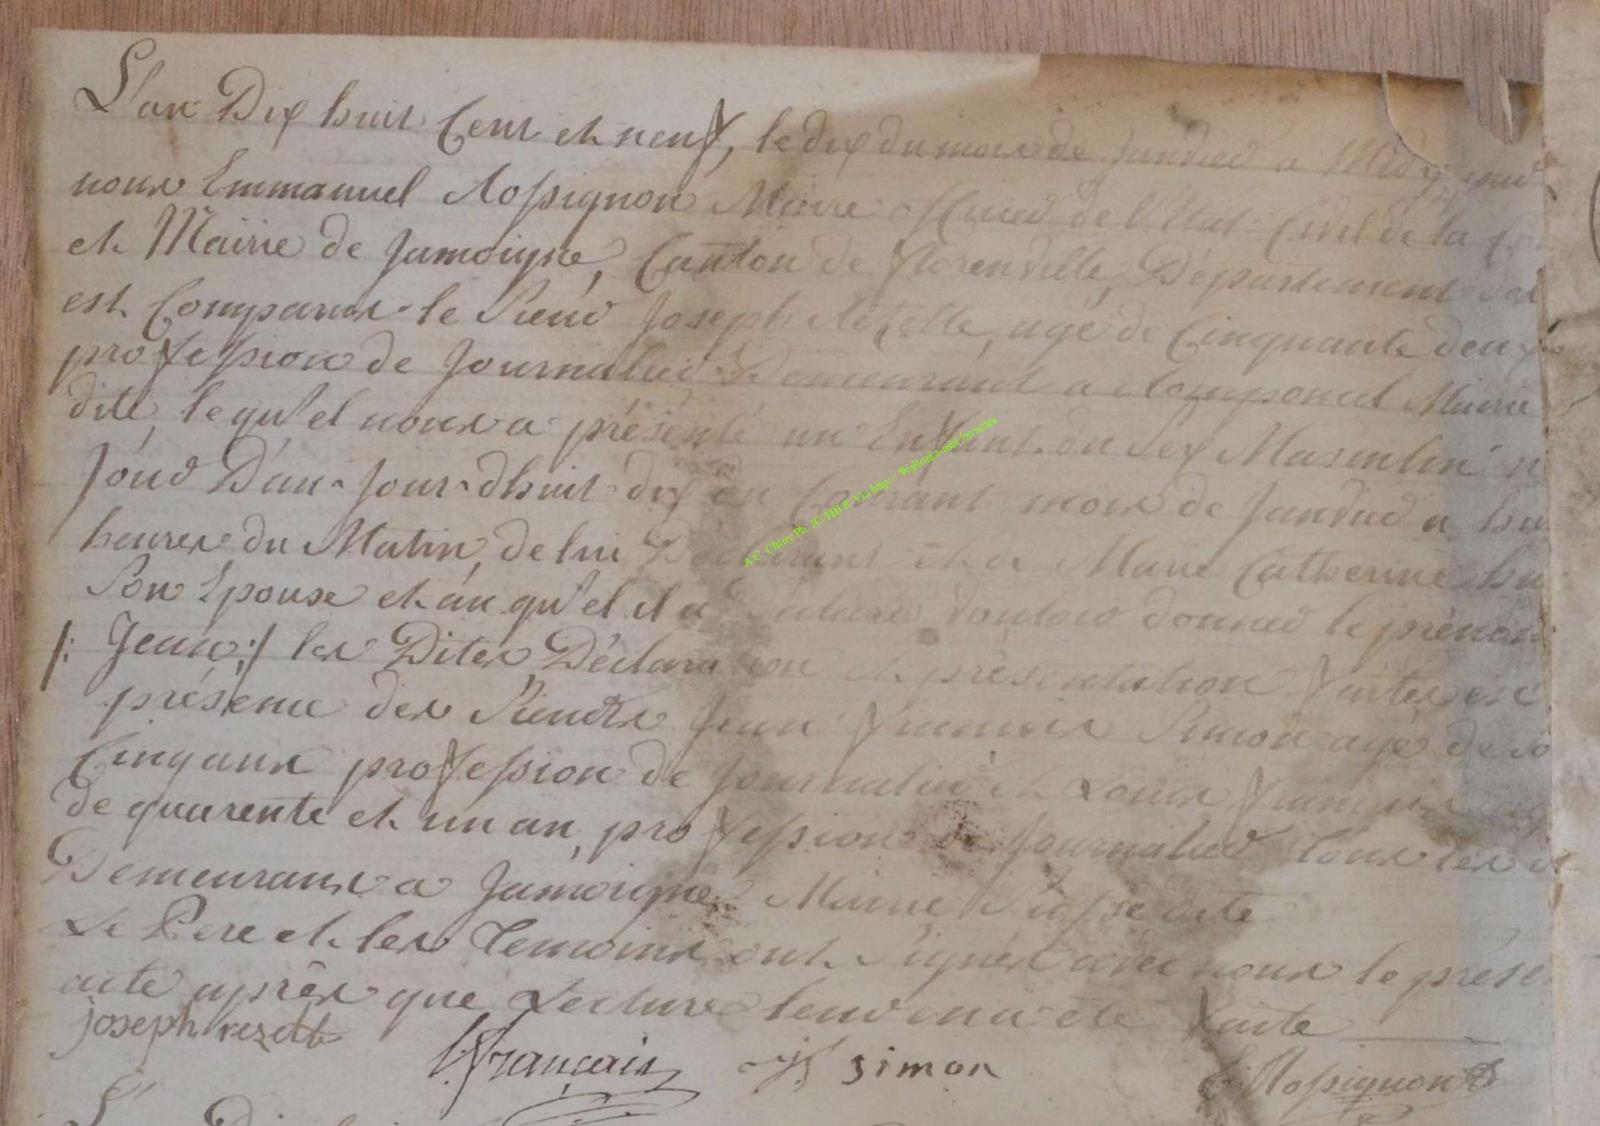 L'an Dix huit Cent et neuf, le dix du mois de Janvier a Midy par
nous Emmanuel Rossignon Maire officier de l'Etat-Civil de la Com
et Mairie de Jamoigne, Canton de florenville, Département des
est Comparus le Sieur Joseph Rezette, agé de Cinquante deux
profession de Journalier Demeurant a Romponcel Mairie
dite, le qu'el nous a présenté un Enfant du Sex Masculin n
Jour D'au-Jour-dhuit dix du Courant mois de Janvier a hu
heures du Matin, de lui Déclarant et de Marie Catherine hu
Son Epouse et au qu'el il a déclaré vouloir donner le prénom
/: Jean :/ les Dites Déclaration et présentation faites en
présence des Sieurs Jean françois Simon agé de so
Cinq ans profession de Journalier et Louis françois
de quarente et un an, profession de Journalier Tous les
Demeurans a Jamoigne Mairie Susse dite
Le Pere et les Temoins ont Signés avec nous le prése
acte après que Lecture leur en a été faite
joseph rezette
L françois
J f simon
E Rossignon
A.C. Chiny Ph. JC/HB @ Via http://